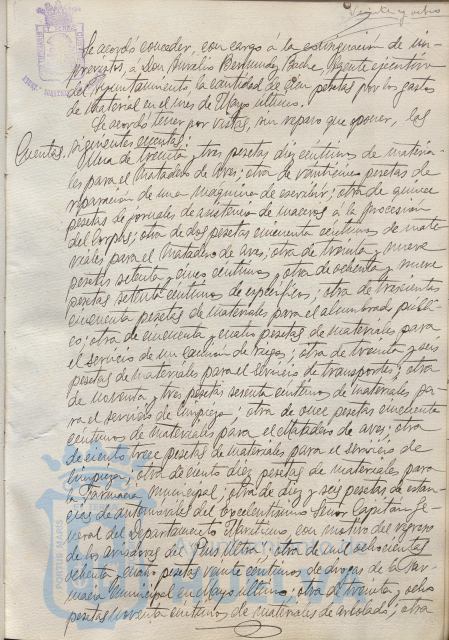 Veinte y ocho
Se acordó conceder, con cargo á la consignación de im-
previstos, á Don Aurelio Bermúdez, Agente ejecutivo
del Ayuntamiento, la cantidad de cien pesetas por los gastos
de material en el mes de Mayo último.
Se acordó tener por vistas, sin reparo que oponer, las
Cuentas. siguientes cuentas:
Una de treinta y tres pesetas diez céntimos de materia-
les para el Matadero de Aves; otra de veinticinco pesetas de
reparación de una maquina de escribir; otra de quince
pesetas de jornales de asistencia de maceros á la procesión
del Corpus; otra de dos pesetas cincuenta céntimos de mate
riales para el matadero de aves; otra de treinta y nueve
pesetas setenta y cinco céntimos y otra de ochenta y nueve
pesetas setenta céntimos de específicos; otra de trescientas
cincuenta pesetas de materiales para el alumbrado públi-
co; otra de cincuenta y cuatro pesetas de materiales para
el servicio de un camión de riego; otra de treinta y seis
pesetas de materiales para el servicio de transportes; otra
de noventa y tres pesetas sesenta céntimos de materiales pa-
ra el servicio de limpieza; otra de once pesetas cincuenta
céntimos de materiales para el Matadero de aves; otra
de ciento trece pesetas de materiales para el servicio de
limpieza; otra de ciento diez pesetas de materiales para
la Farmacia Municipal; otra de diez y seis pesetas de estan-
cias de automóviles del Excelentísimo Señor Capitán Ge-
neral del Departamento Marítimo, con motivo del regreso
de los aviadores del Plus Ultra; otra de mil ochocientas
ochenta cuatro pesetas veinte céntimos de drogas de la Far-
macia Municipal en Mayo último; otra de treinta y ocho
pesetas noventa céntimos de materiales de arbolado; otra